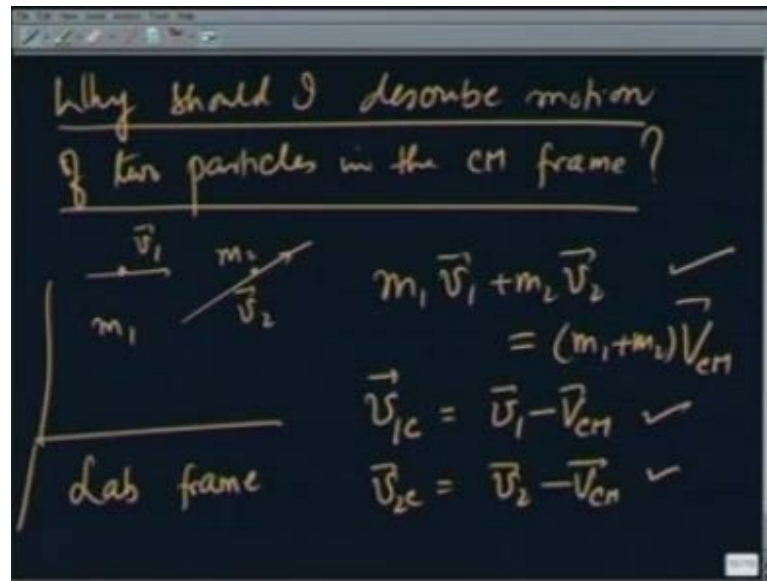 Why should I describe motion
of two particles in the CM frame?
v⃗₁
m₂
m₁
v⃗₂
m₁v⃗₁ + m₂v⃗₂ ✓
= (m₁+m₂)V⃗_CM
v⃗_1c = v⃗₁ − V⃗_CM ✓
v⃗_2c = v⃗₂ − V⃗_CM ✓
Lab frame